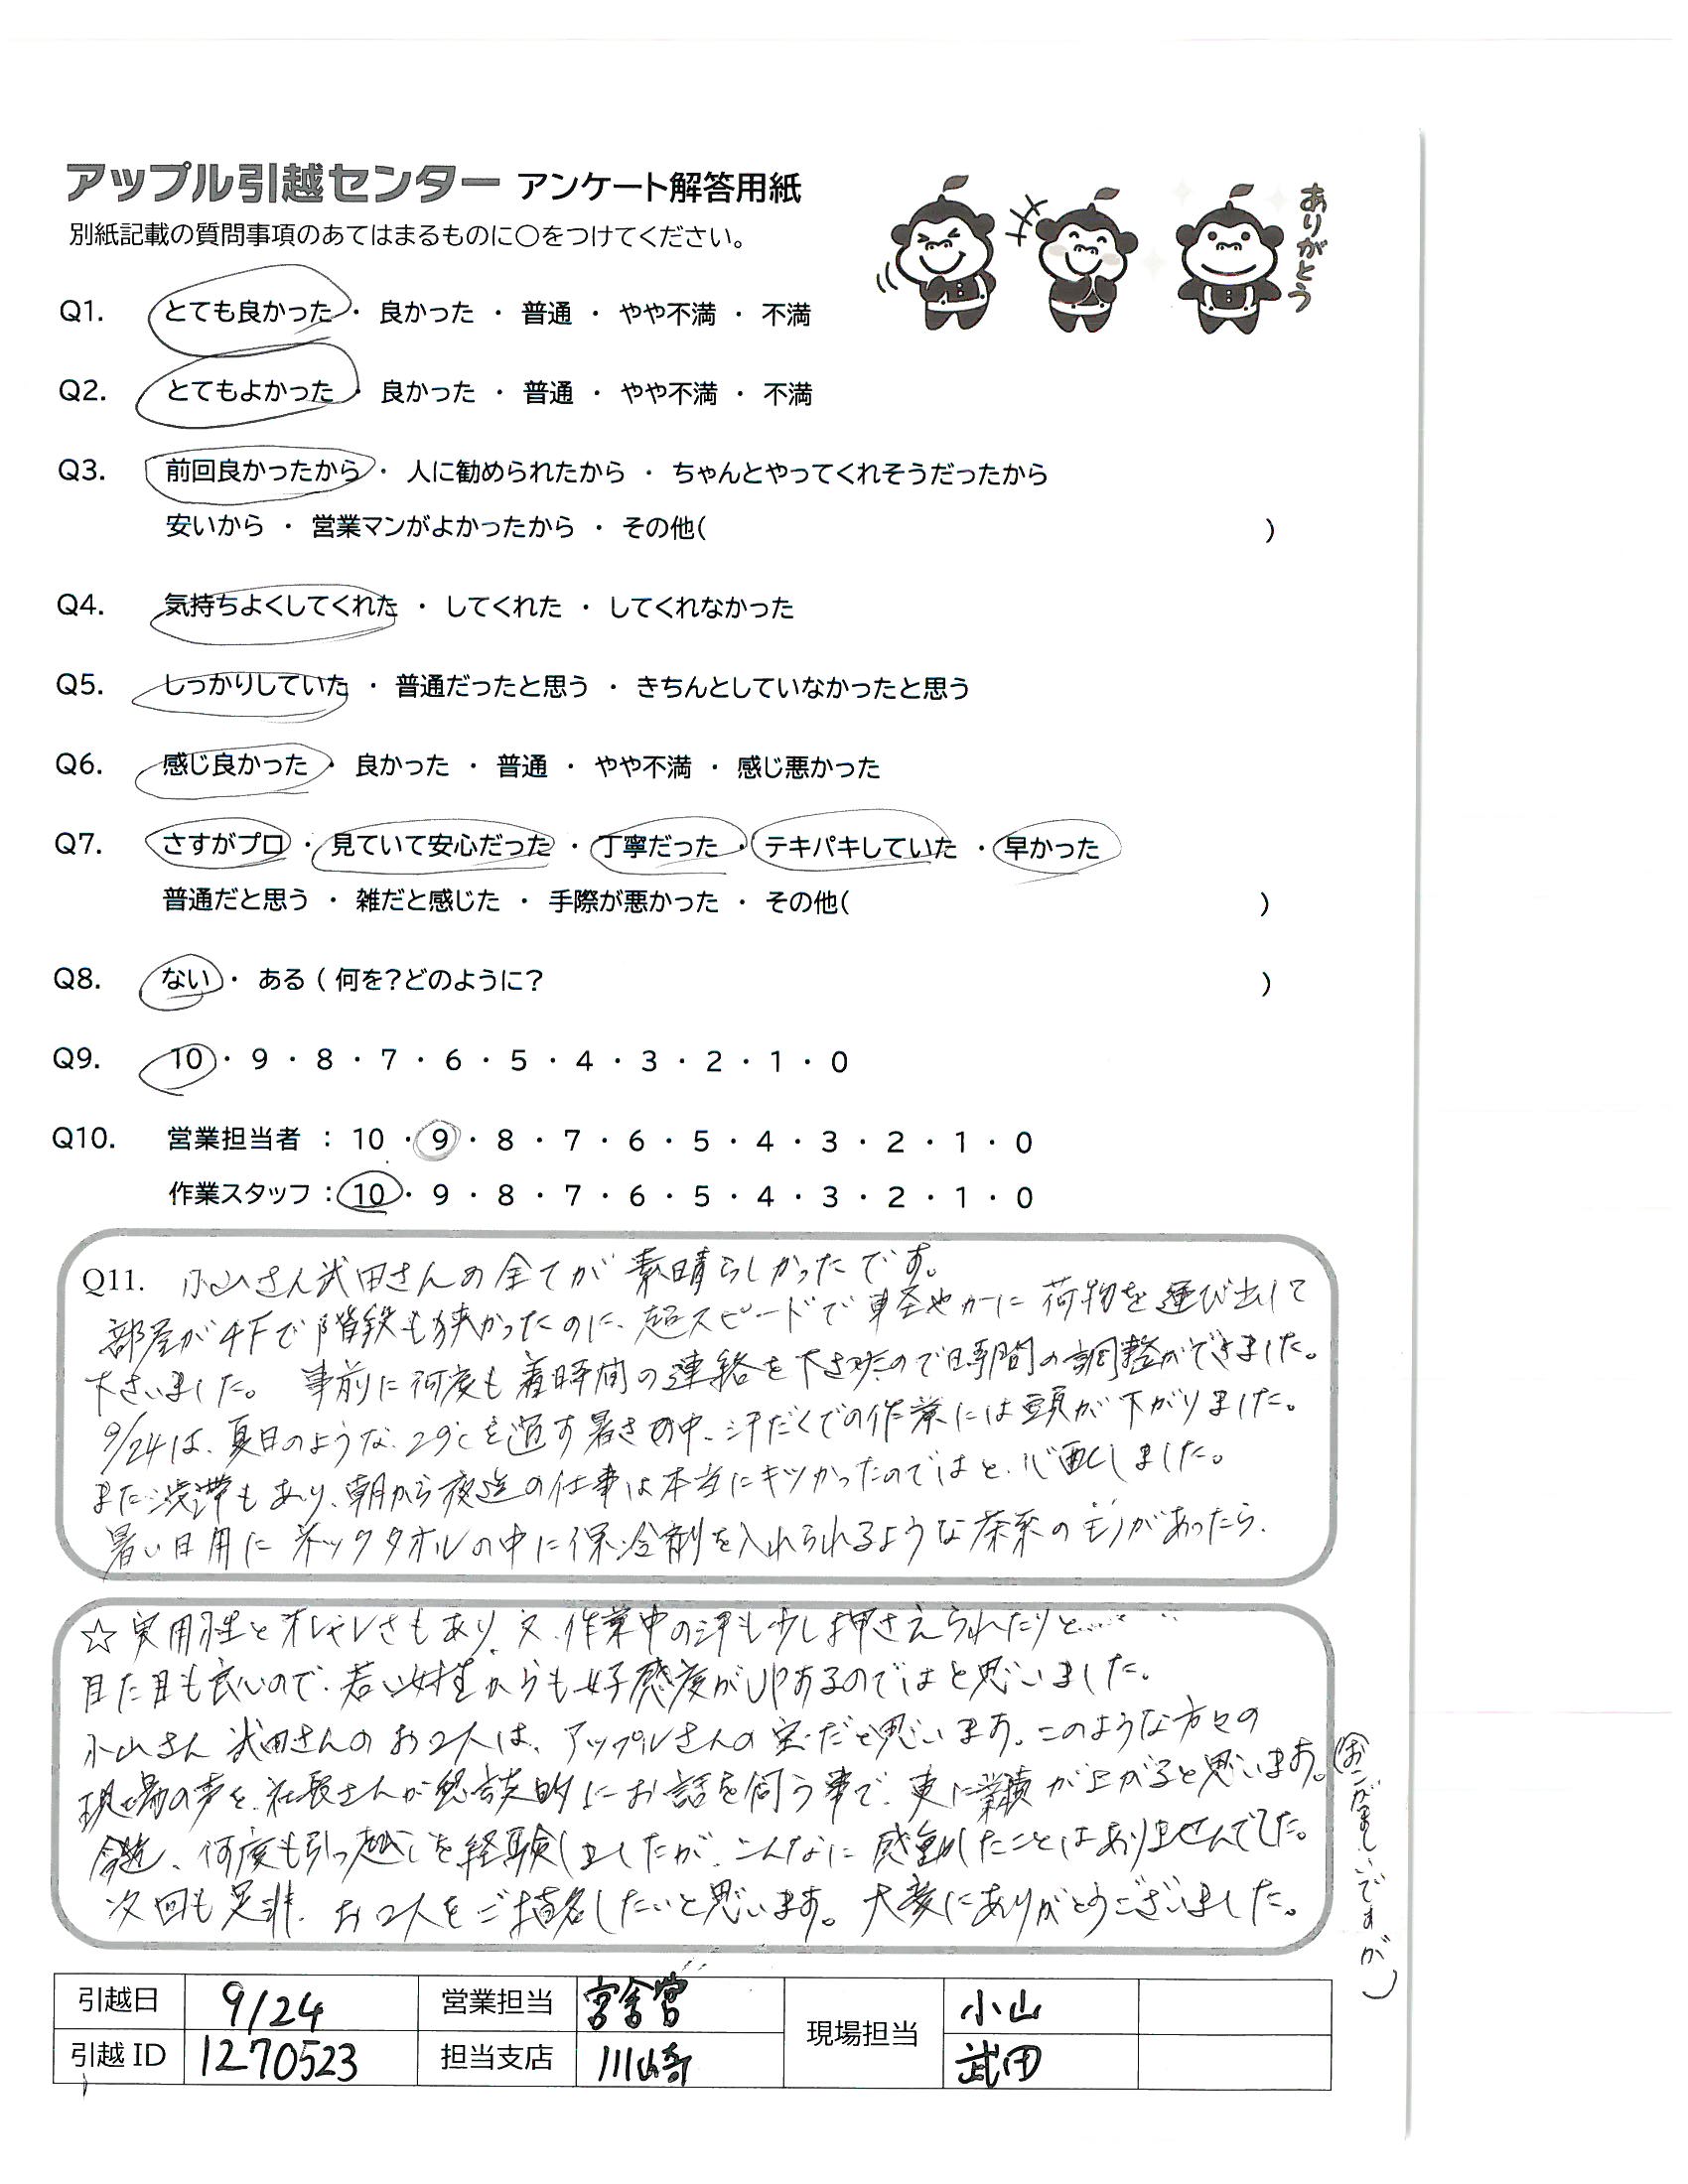 アップル引越センター アンケート解答用紙
別紙記載の質問事項のあてはまるものに〇をつけてください。
ありがとう
Q1. とても良かった ・ 良かった ・ 普通 ・ やや不満 ・ 不満
Q2. とてもよかった ・ 良かった ・ 普通 ・ やや不満 ・ 不満
Q3. 前回良かったから ・ 人に勧められたから ・ ちゃんとやってくれそうだったから
安いから ・ 営業マンがよかったから ・ その他( )
Q4. 気持ちよくしてくれた ・ してくれた ・ してくれなかった
Q5. しっかりしていた ・ 普通だったと思う ・ きちんとしていなかったと思う
Q6. 感じ良かった ・ 良かった ・ 普通 ・ やや不満 ・ 感じ悪かった
Q7. さすがプロ ・ 見ていて安心だった ・ 丁寧だった ・ テキパキしていた ・ 早かった
普通だと思う ・ 雑だと感じた ・ 手際が悪かった ・ その他( )
Q8. ない ・ ある ( 何を?どのように? )
Q9. 10 ・ 9 ・ 8 ・ 7 ・ 6 ・ 5 ・ 4 ・ 3 ・ 2 ・ 1 ・ 0
Q10. 営業担当者 : 10 ・ 9 ・ 8 ・ 7 ・ 6 ・ 5 ・ 4 ・ 3 ・ 2 ・ 1 ・ 0
作業スタッフ : 10 ・ 9 ・ 8 ・ 7 ・ 6 ・ 5 ・ 4 ・ 3 ・ 2 ・ 1 ・ 0
Q11. 小山さん武田さんの全てが素晴らしかったです。
部屋が4Fで階段も狭かったのに、超スピードで軽やかに荷物を運び出して
下さいました。 事前に何度も着時間の連絡を下さったので時間の調整ができました。
9/24は、夏日のような、29℃を過す暑さの中、汗だくでの作業には頭が下がりました。
また渋滞もあり、朝から夜迄の仕事は本当にキツかったのではと、心配しました。
暑い日用にネックタオルの中に保冷剤を入れられるような茶系のモノがあったら、
☆実用性とオシャレさもあり、又、作業中の汗も少しは押さえられたりと……
目た目も良いので、若い女性からも好感度がUPするのではと思いました。
小山さん 武田さんのお2人は、アップルさんの宝だと思います。このような方々の
現場の声を、社長さんが をお話を伺う事で、更に業績が上がると思います。
(おこがましいですが)
今迄、何度も引っ越しを経験しましたが、こんなに感動したことはありませんでした。
次回も是非、お2人をご指名したいと思います。大変にありがとうございました。
引越日 9/24 営業担当 現場担当 小山
引越ID 1270523 担当支店 川崎 武田